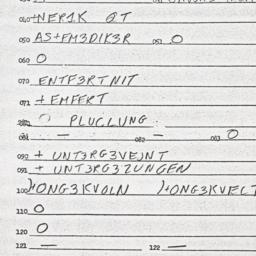 040 +NEP1K QT
050 AS+EM3DIK3R 051 O
060 O
070 ENTF3RTNIT
071 + EMFERT
O PLUCLUNG.
081 — 082 — 083 O
092 + UNT3RG3VEJNT
091 + UNT3RG3ZUNGEN
100 ONG3KVOLN ONG3KVELT
110 O
120 O
121 — 122 —